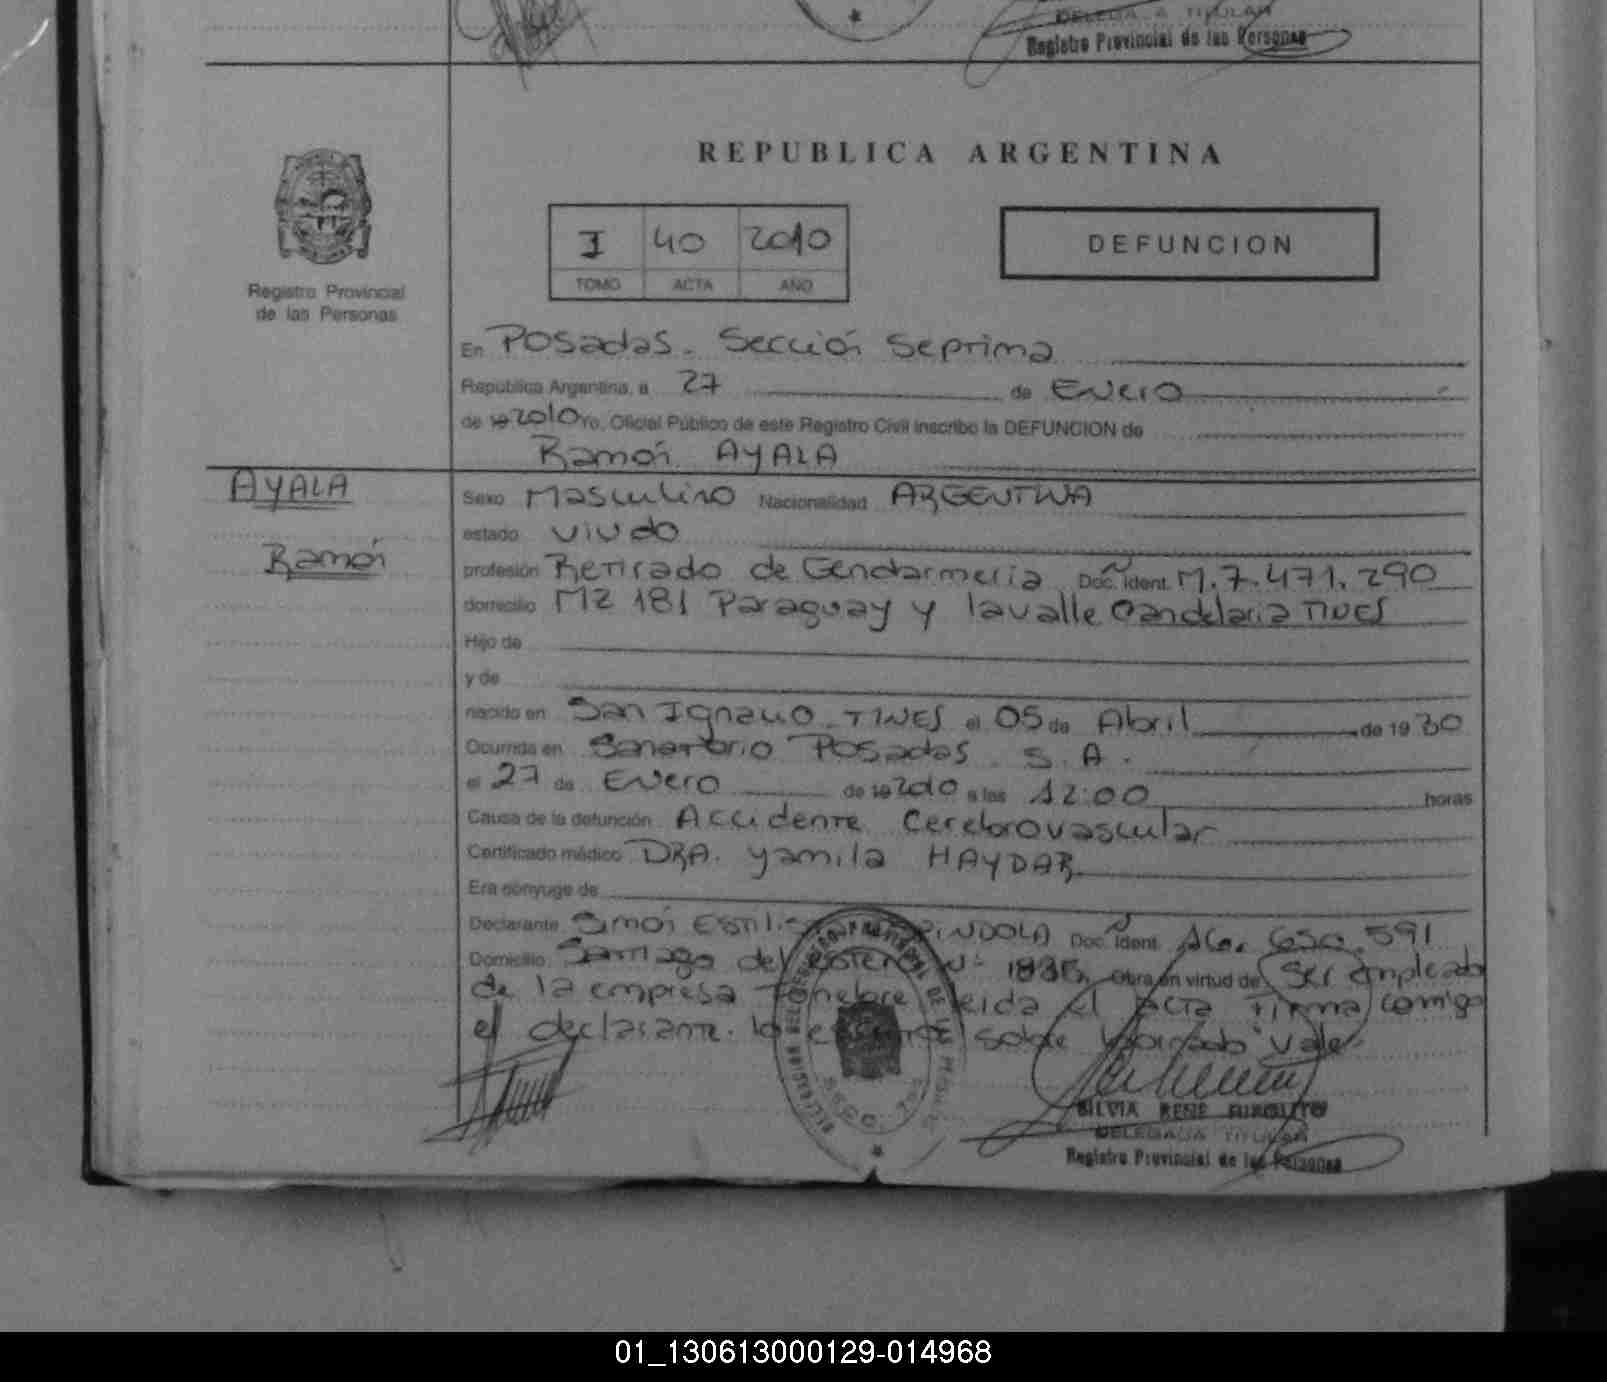 DELEGADA TITULAR
Registro Provincial de las Personas
REPUBLICA ARGENTINA
I 40 2010
TOMO ACTA AÑO
DEFUNCION
Registro Provincial
de las Personas
En Posadas. Sección Septima
República Argentina, a 27 de Enero
de 19 2010 Yo, Oficial Público de este Registro Civil inscribo la DEFUNCION de
Ramón AYALA
AYALA
Ramón
Sexo Masculino Nacionalidad ARGENTINA
estado Viudo
profesión Retirado de Gendarmeria Doc. Ident. M.7.471.290
domicilio Mz 181 Paraguay y lavalle Candelaria
Hijo de
y de
nacido en San Ignacio el 05 de Abril de 19 30
Ocurrida en Sanatorio Posadas S.A.
el 27 de Enero de 19 2010 a las 12:00 horas
Causa de la defunción Accidente Cerebrovascular
Certificado médico DRA. Yamila HAYDAR
Era cónyuge de
Declarante Simón Doc. Ident. 16.650.591
Domicilio Santiago del Estero Nº 1835, obra en virtud de Ser empleado
de la empresa Funebre leida el acta firma comigo
el declarante. lo sobre Vale
SILVIA RENE
DELEGADA TITULAR
Registro Provincial de las Personas
01_130613000129-014968